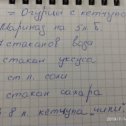 - Огурцы с кетчупом
Маринад на 5 л б.
стаканов вода
стакан уксуса
ст л. соли
стакан сахара
8 л. кетчупа "чили"